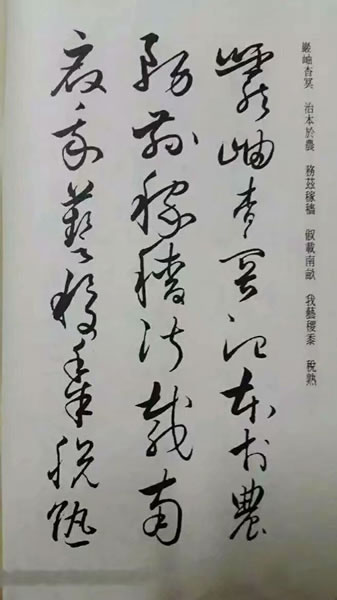 巖岫杳冥　治本於農　務茲稼穡　俶載南畝　我藝稷黍　稅熟
巖岫杳冥治本於農
務茲稼穡俶載南
畝我藝稷黍稅熟